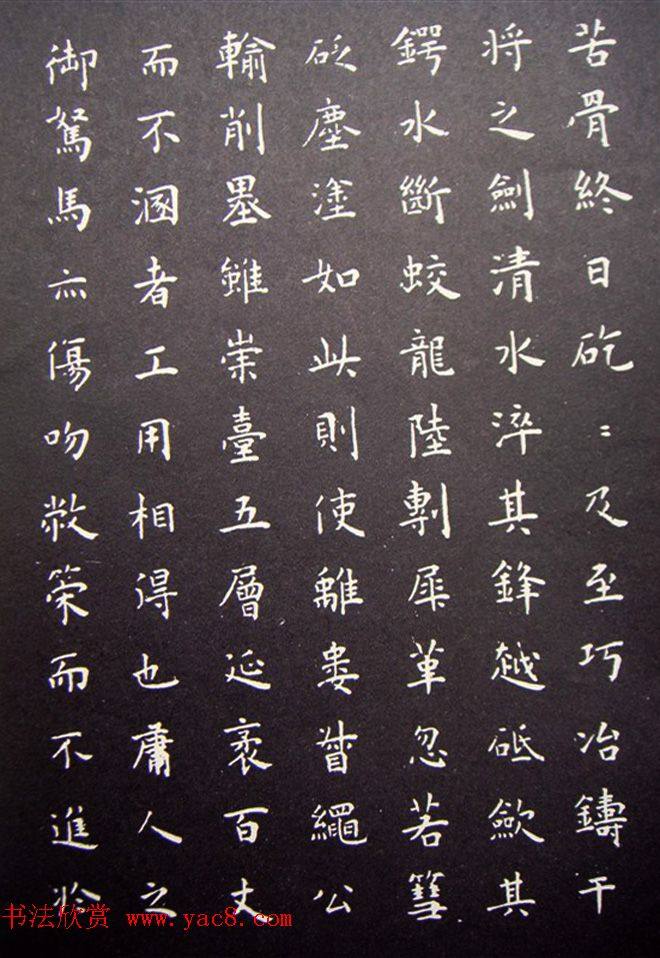 苦骨終日矻〻及至巧冶鑄干
将之劍清水淬其鋒越砥歛其
鍔水斷蛟龍陸剸犀革忽若篲
砭塵塗如此則使離婁督繩公
輸削墨雖崇臺五層延袤百丈
而不溷者工用相得也庸人之
御駑馬亦傷吻敝策而不進於
书法欣赏 www.yac8.com